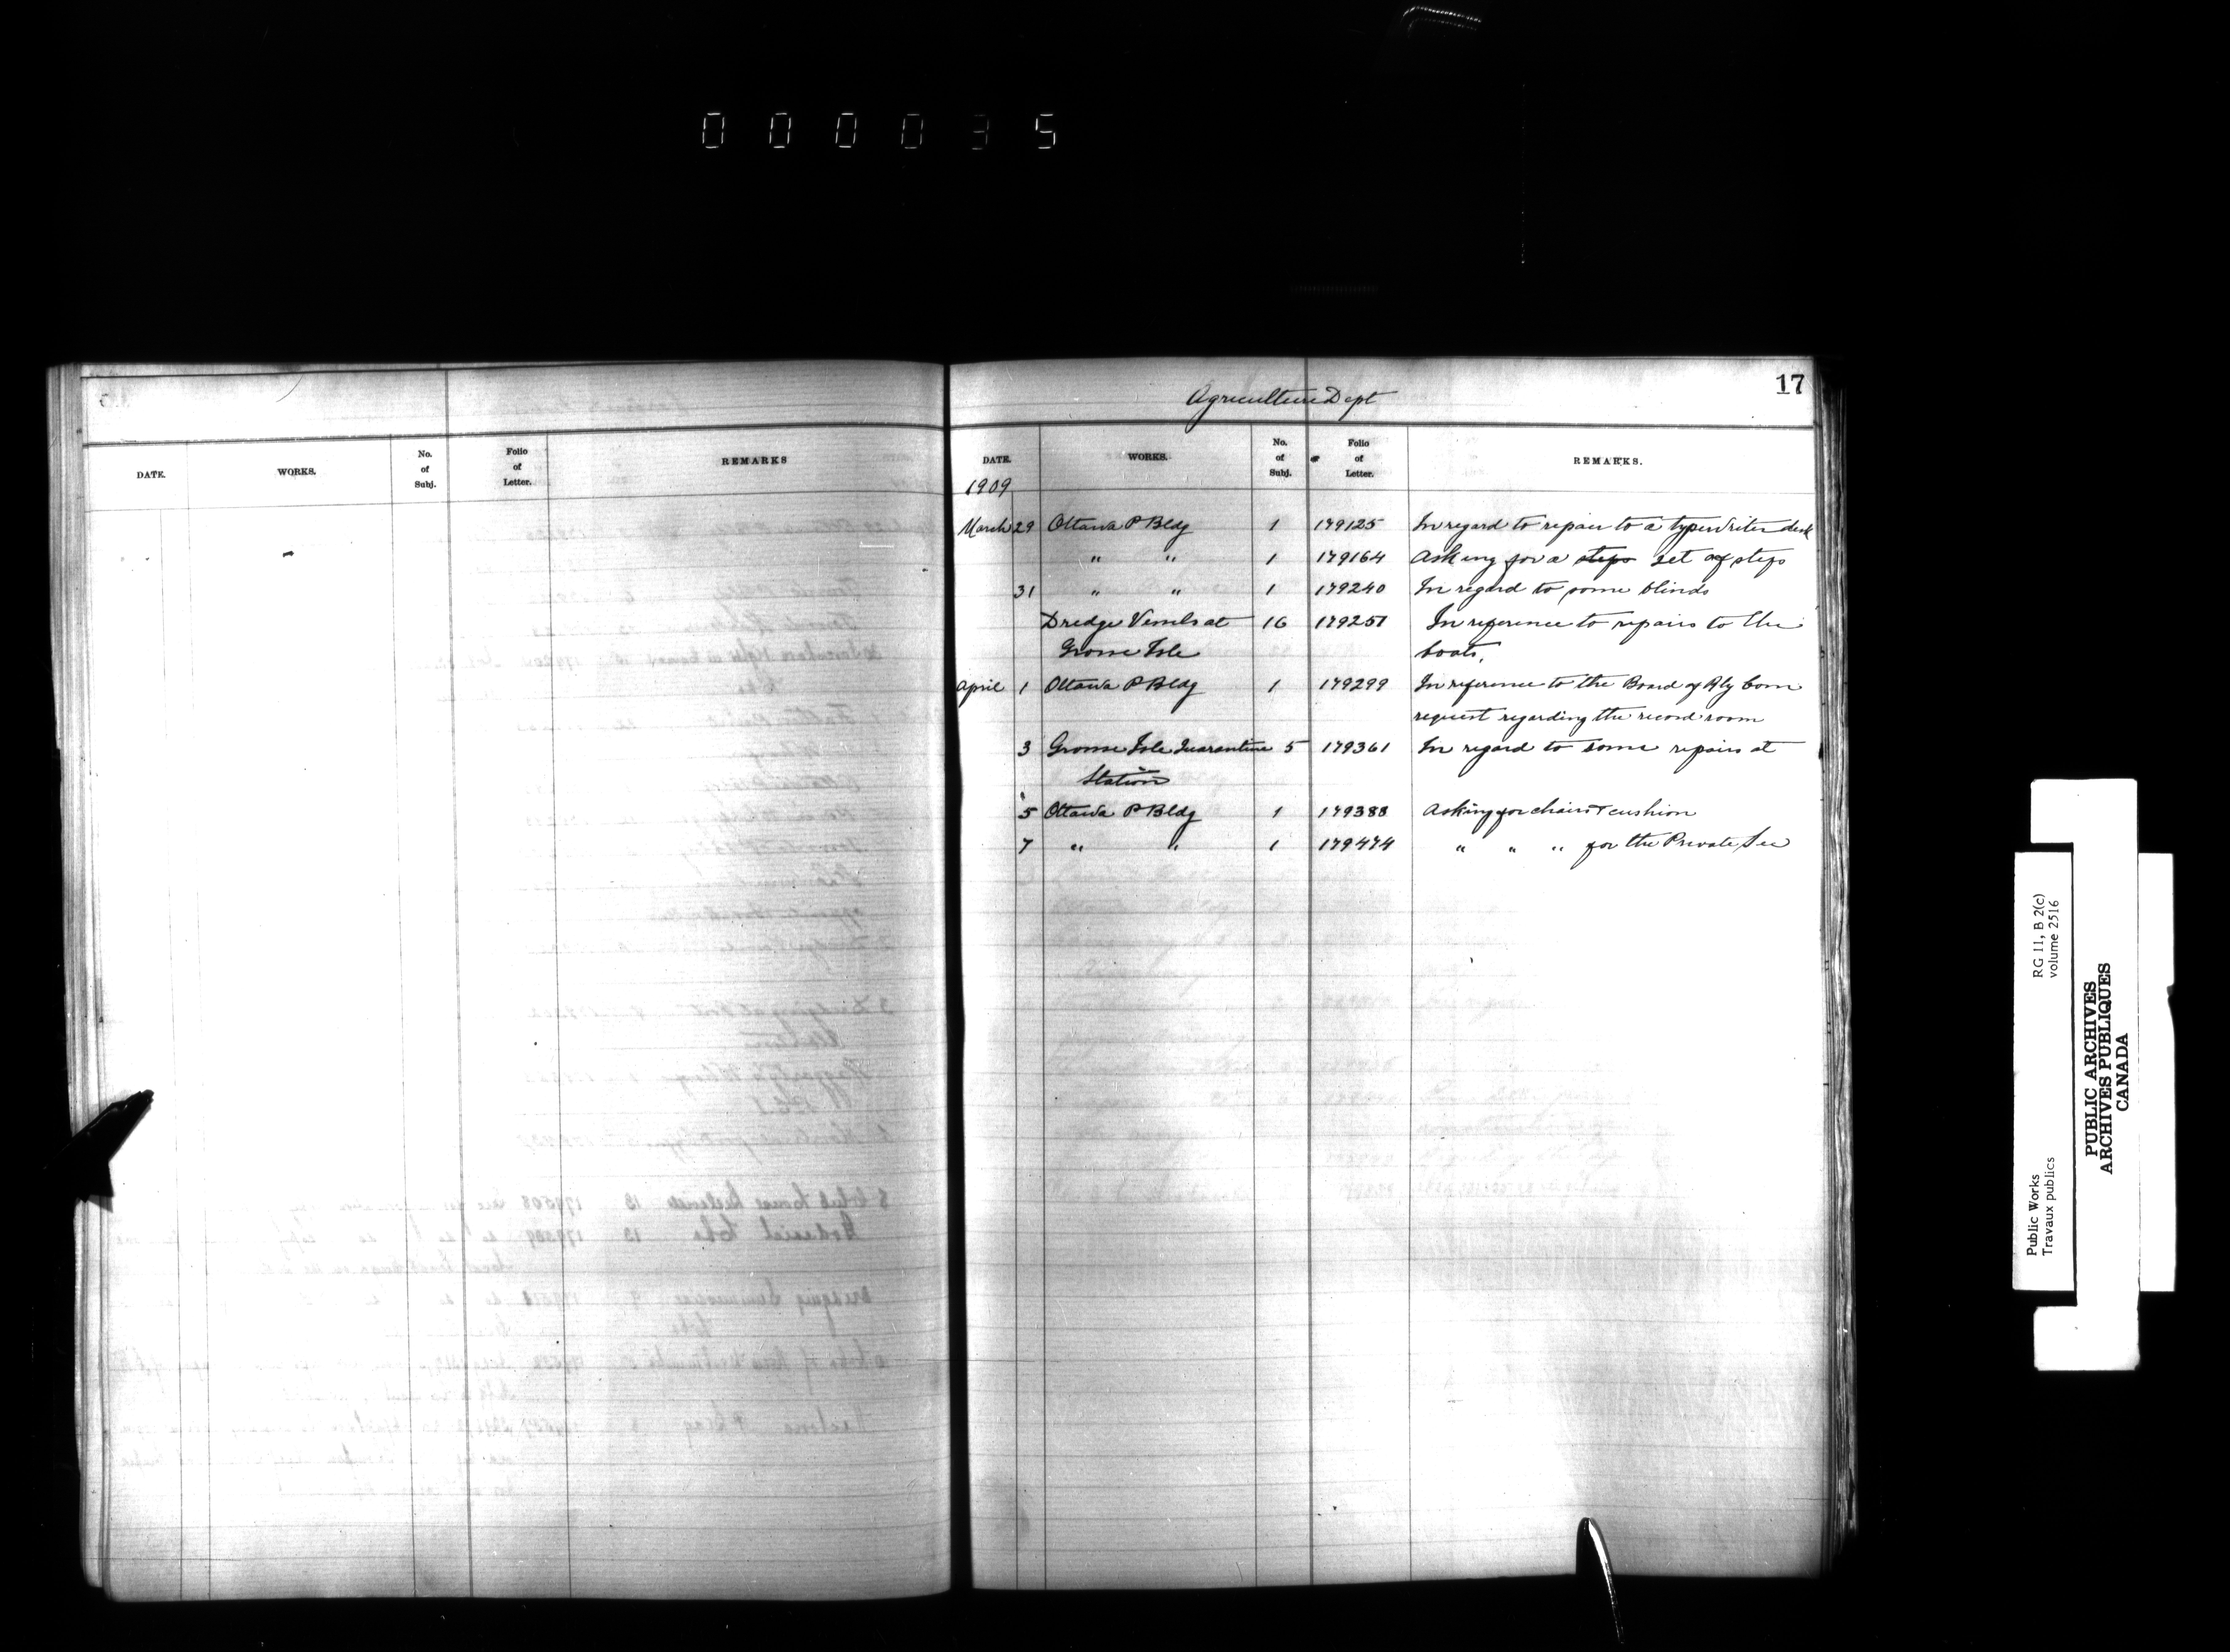 000035
DATE. WORKS. No. of Subj. Folio of Letter. REMARKS
17
Agriculture Dept
DATE. WORKS. No. of Subj. Folio of Letter. REMARKS.
1909
March 29 Ottawa P Bldg 1 179125 In regard to repair to a typewriter desk
" " 1 179164 Asking for a steps set of steps
31 " " 1 179240 In regard to some blinds
Dredge Vessels at 16 179257 In reference to repairs to the
Grosse Isle boats,
April 1 Ottawa P Bldg 1 179299 In reference to the Board of Rly Com
request regarding the record room
3 Grosse Isle Quarantine 5 179361 In regard to some repairs at
Station
5 Ottawa P Bldg 1 179388 Asking for chairs + cushion
7 " " 1 179474 " " " for the Private Sec
Public Works RG 11, B 2(c)
Travaux publics volume 2516
PUBLIC ARCHIVES
ARCHIVES PUBLIQUES
CANADA